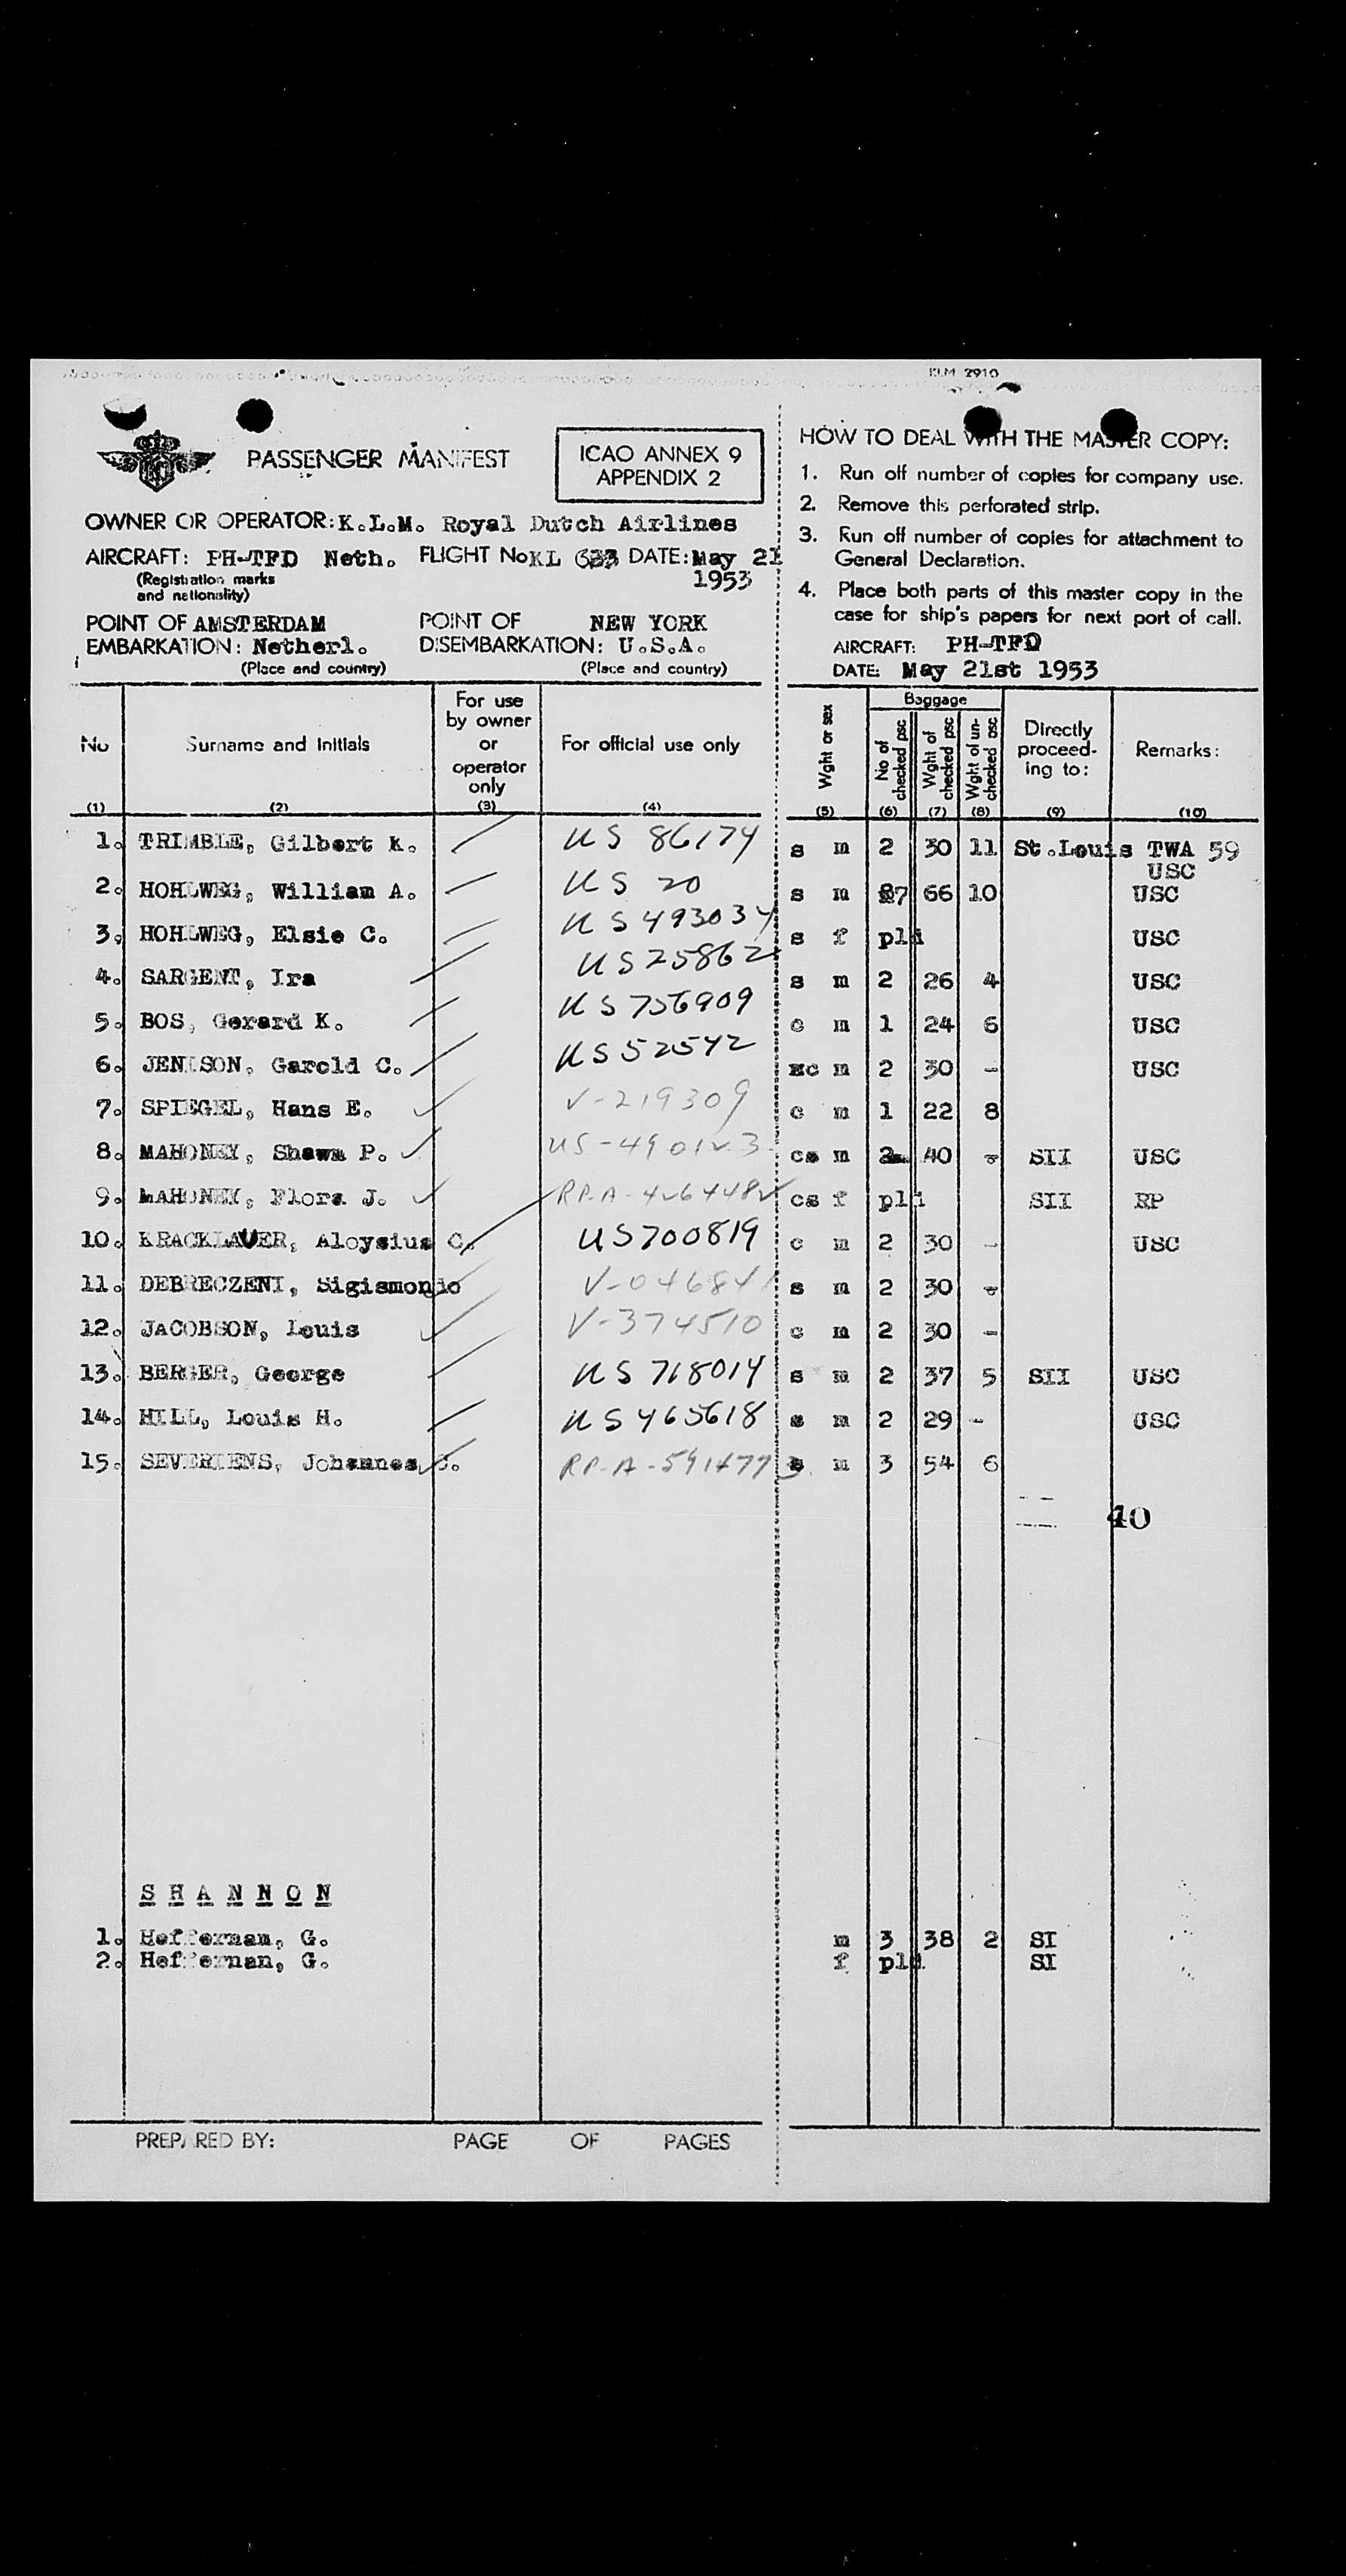 KLM 2910
PASSENGER MANIFEST
ICAO ANNEX 9
APPENDIX 2
OWNER OR OPERATOR: K.L.M. Royal Dutch Airlines
AIRCRAFT: PH-TFD Neth. FLIGHT No KL 633 DATE: May 21
(Registration marks
and nationality)
1953
POINT OF AMSTERDAM POINT OF NEW YORK
EMBARKATION: Netherl. DISEMBARKATION: U.S.A.
(Place and country) (Place and country)
HOW TO DEAL WITH THE MASTER COPY:
1. Run off number of copies for company use.
2. Remove this perforated strip.
3. Run off number of copies for attachment to
General Declaration.
4. Place both parts of this master copy in the
case for ship's papers for next port of call.
AIRCRAFT: PH-TFD
DATE: May 21st 1953
No Surname and Initials For use by owner or operator only For official use only Wght or sex Baggage No of checked psc Wght of checked psc Wght of un-checked psc Directly proceed-ing to: Remarks:
(1) (2) (3) (4) (5) (6) (7) (8) (9) (10)
1. TRIMBLE, Gilbert K. US 86174 s m 2 30 11 St.Louis TWA 59
USC
2. HOHLWEG, William A. US 20 s m 7 66 10 USC
3. HOHLWEG, Elsie C. US 493034 s f pld USC
4. SARGENT, Ira US 25862 s m 2 26 4 USC
5. BOS, Gerard K. US 756909 c m 1 24 6 USC
6. JENISON, Garold C. US 52542 c m 2 30 - USC
7. SPIEGEL, Hans E. V-219309 c m 1 22 8
8. MAHONEY, Shawn P. US-490123 cs m 2 40 - SII USC
9. MAHONEY, Flora J. RP-A- cs f pld SII RP
10. KRACKLAUER, Aloysius C. US 700819 c m 2 30 - USC
11. DEBRECZENI, Sigismondo V-046841 s m 2 30 -
12. JACOBSON, Louis V-374510 c m 2 30 -
13. BERGER, George US 718014 s m 2 37 5 SII USC
14. HILL, Louis H. US 465618 s m 2 29 - USC
15. SEVERIENS, Johannes J. RP-A- s m 3 54 6
40
SHANNON
1. Heffernan, G. m 3 38 2 SI
2. Heffernan, G. f pld SI
PREPARED BY: PAGE OF PAGES